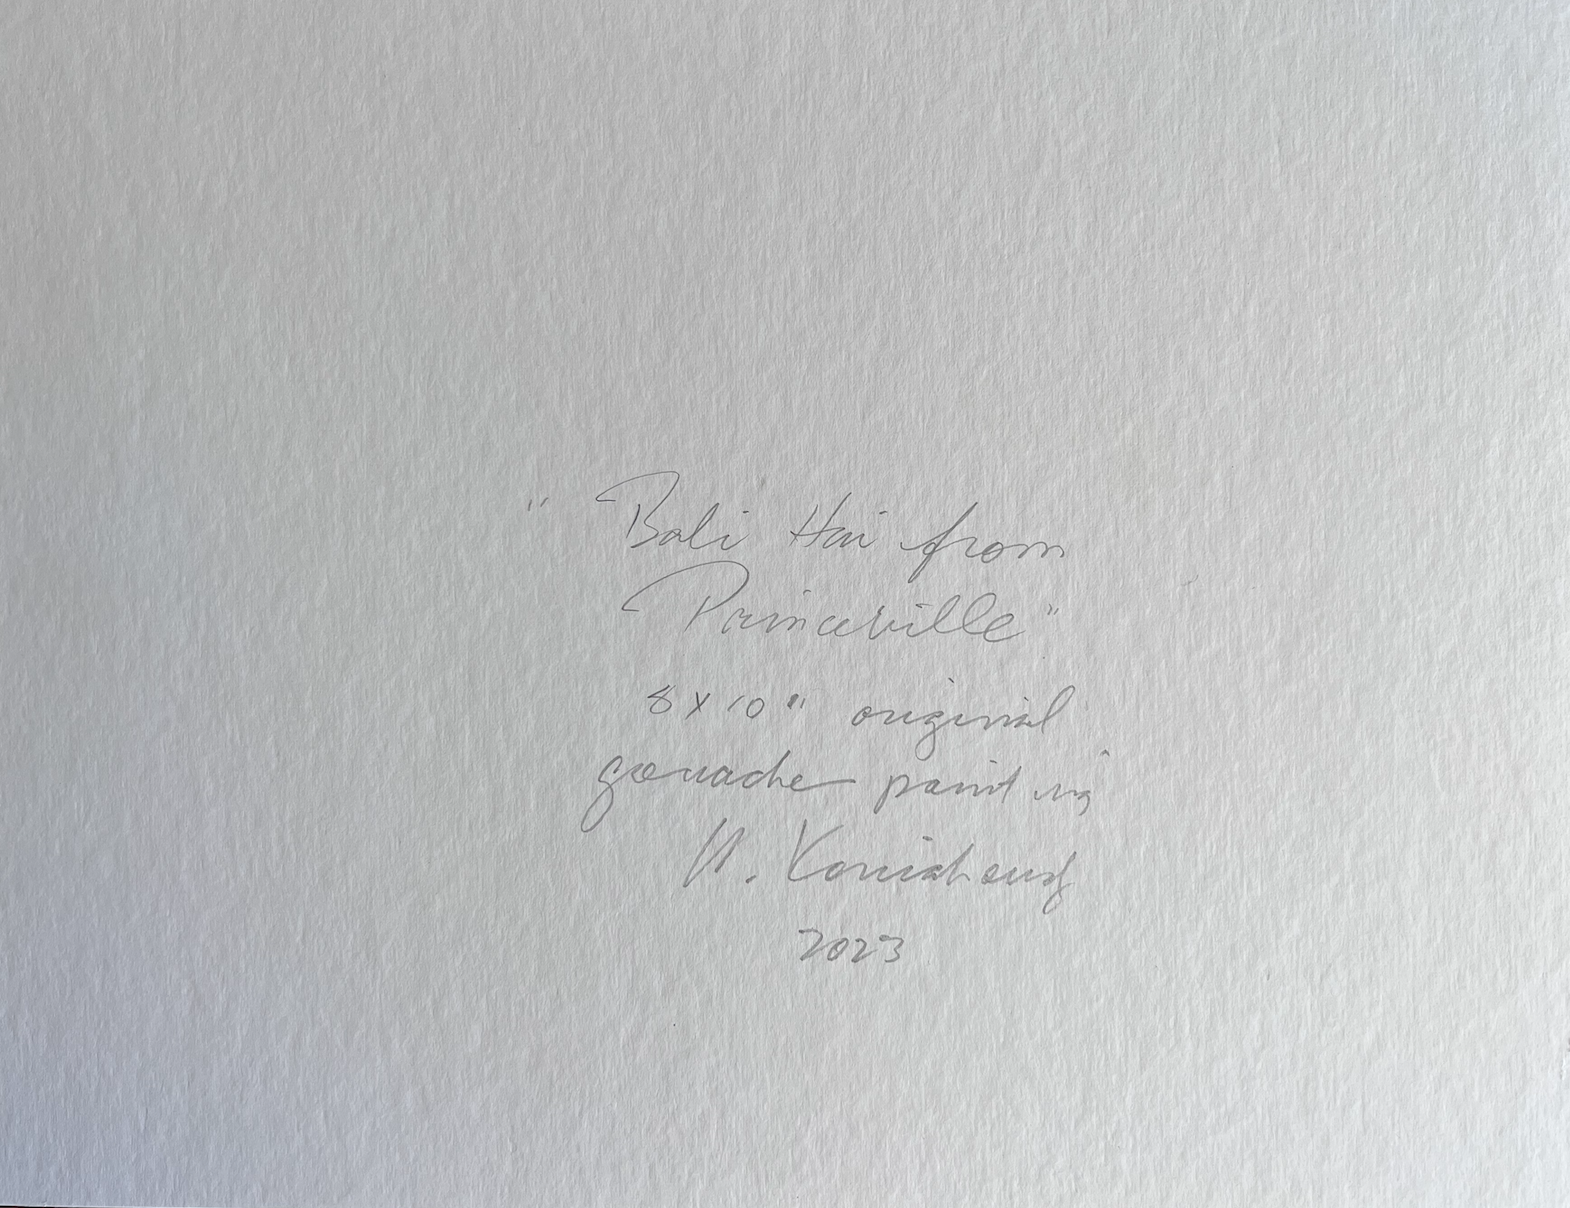 "Bali Hai from
Princeville"
8x10" original
gouache painting
2023